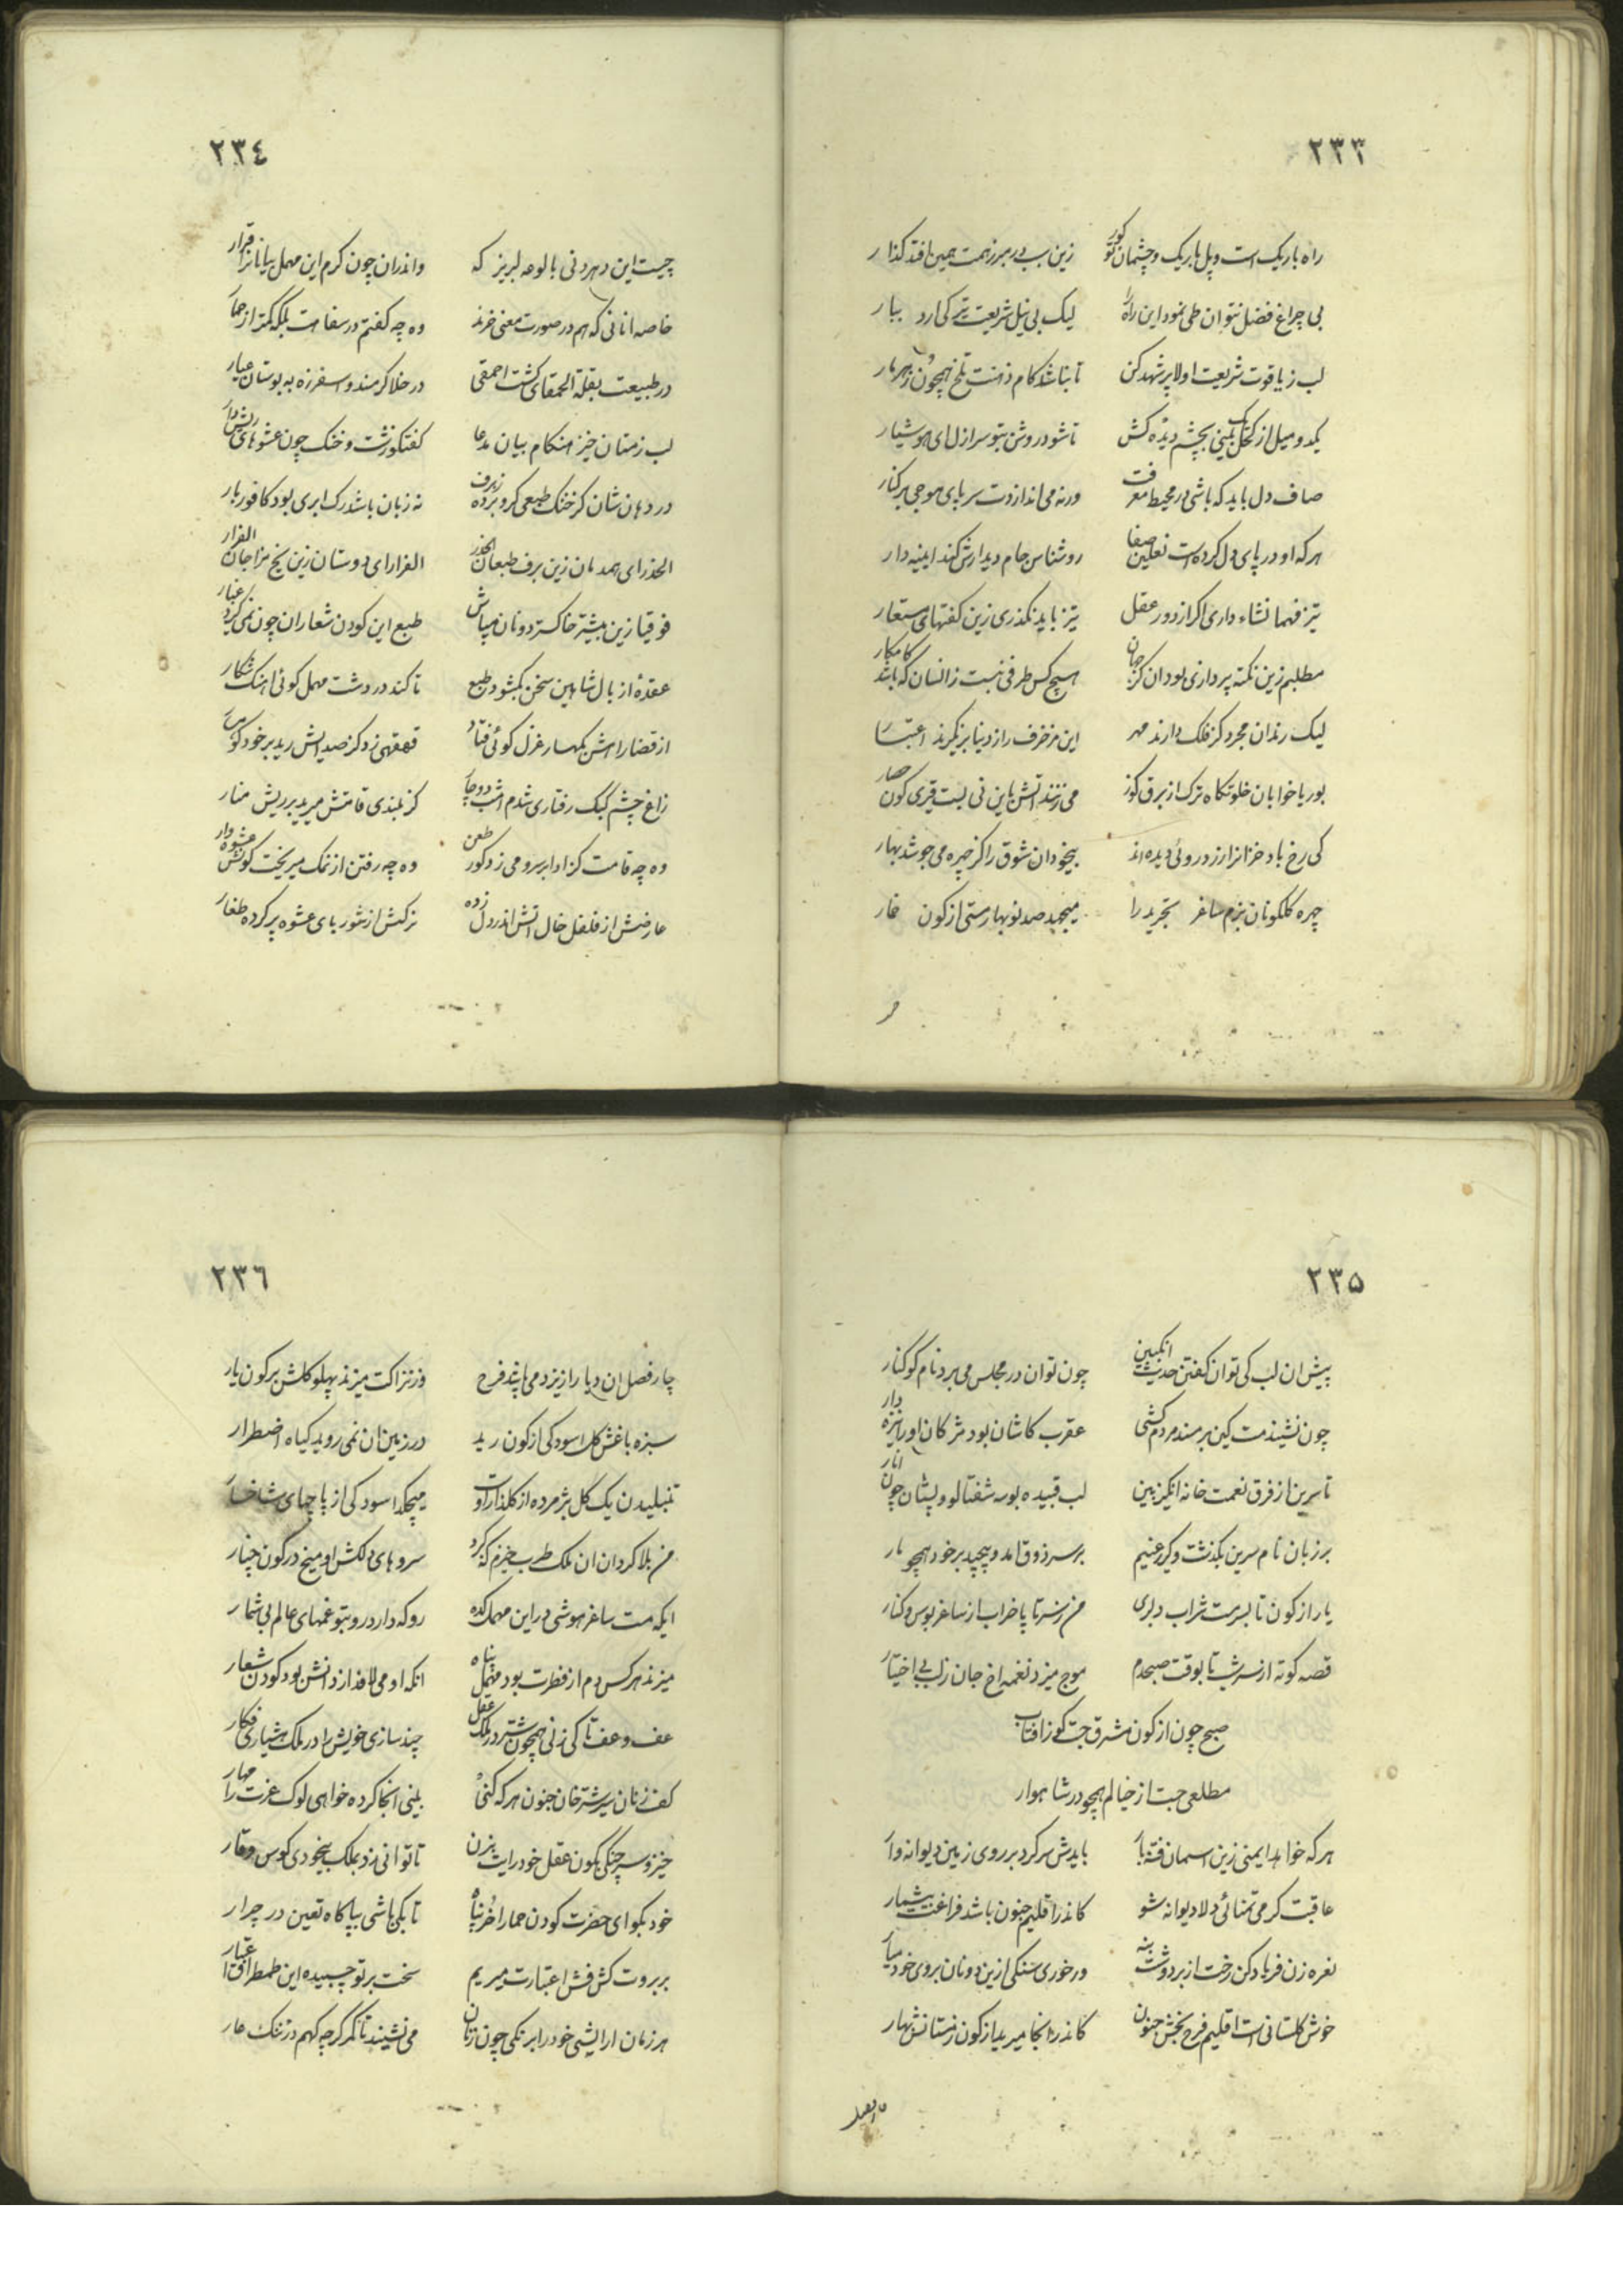 ٢٣٣
راه باریک است و پل باریک و چشمان تو کور زین سبب در هر زهمت همین افتد کذار
بی چراغ فضل نتوان طی نمود این راه را لیک بی نیل شریعت تر کی ارد ببار
لب ز یاقوت شریعت اولا پر شهد کن تا نباشد کام ذهنت تلخ همچون زهر مار
یکدو میل از کحل بینی بچشم دیده کش تا شود روشن بتو سر ازل ای هوشیار
صاف دل باید که باشی در محیط معرفت ورنه می اندازدت سر پای موجی بر کنار
هر که او در پای دل کرده است نعلین صفا روشناس جام دیدارش کند ایینه دار
تیز فهما نشاء داری اکر از دور عقل تیز باید نکذری زین کفتهای مستعار
مطلبم زین نکته پردازی بود ان کز جهان هیچ کس طرفی نبست زانسان که باشد کامکار
لیک رندان مجرد کز فلک دارند مهر این مزخرف را ز دنیا بر نکیرند اعتبار
بوریا خوابان خلوتکاه ترک از برق کوز می زنند اتش باین نی بست قیری کون حصار
کی رخ باد خزانرا زرد روئی دیده اند بیخودان شوق را کز چهره می جوشد بهار
چهره کلکونان بزم ساغر تجرید را میجهد صد نوبهار مستی از کون خمار
٢٣٤
چیست این دهر دنی بالوعه لبریز که واندران چون کرم این مهمل بیانانرا قرار
خاصه انانی که هم در صورت معنی خرند وه چه کفتم در سفاهت بلکه کمتر از حمار
در طبیعت بقلة الحمقای کشت احمقی در خلا کرمند و اسفرزه به بوستان عیار
لب زمستان خیز هنکام بیان مدعا کفتکو زشت و خنک چون عشوهای ریش دار
در دهان شان کز خنک طبعی کرو برده ز برف نه زبان باشد رک ابری بود کافور بار
الحذر ای همدمان زین برف طبعان الحذر الفرار ای دوستان زین یخ مزاجان الفرار
فوقیا زین بیشتر خاکستر دونان مپاش طبع این کودن شعاران چون نمی کیرد غبار
عقدهٔ از بال شاهین سخن بکشود طبع تا کند در دشت مهمل کوئی اهنک شکار
از قضا راهش بکهسار غزل کوئی فتاد قهقهی زد کز صدایش رید بر خود کوهسار
زاغ چشم کبک رفتاری شدم امشب دوچار کز بلندی قامتش میرید بر ریش منار
وه چه قامت کز ادا بر سرو می زد کور طعن وه چه رفتن از نمک میریخت کونش عشوه وار
عارضش از فلفل خال اتش اندر دل زده نرکش از شوربای عشوه پر کرده طغار
٢٣٥
پیش ان لب کی توان کفتن حدیث انکبین چون توان در مجلس می برد نام کوکنار
چون نشیند مست کین بر مسند مردم کشی عقرب کاشان بود مژکان او را نیزه دار
تا سرین از فرق نعمت خانه انکیز بین لب قبیده بوسه شفتالو و پستان چون انار
بر زبان نام سرین بکذشت و کیر غنیم بر سر ذوق امد و پیچید بر خود همچو مار
یار از کون تا بسر مست شراب دلبری من ز سر تا پا خراب از ساغر بوس و کنار
قصه کوته از سر شب تا بوقت صبحدم موج میزد نغمه اخ جان ز لب بی اختیار
صبح چون از کون مشرق جست کوز افتاب
مطلعی جست از خیالم همچو در شاهوار
هر که خواهد ایمنی زین اسمان فتنه بار بایدش سر کرد بر روی زمین دیوانه وار
عاقبت کر می تمنائی دلا دیوانه شو کاندر اقلیم جنون باشد فراغت بیشمار
نعره زن فریاد کن رخت از بر دوشت بنه ور خوری سنکی ازین دونان بروی خود میار
خوش کلستانی است اقلیم فرح بخش جنون کاندر انجا میرید از کون زمستانش بهار
٢٣٦
چار فصل ان دیار از یزد می باشد فرح وز نزاکت میزند پهلو کلش بر کون یار
سبزه باغش کل اسودکی از کون رید در زمین ان نمی روید کیاه اضطرار
تنبلیدن یک کل پژمرده از کلزار اوست میچکد اسودکی از پاچهای شاخسار
من بلا کردان ان ملک طرب خیزم که کرد سروهای دلکش او میخ در کون چنار
ایکه مست ساغر هوشی در این مهمل کده رو که دارد رو بتو غمهای عالم بی شمار
میزند هر کس دم از فطرت بود مهمل پناه انکه او می لافد از دانش بود کودن شعار
عف و عف تا کی زنی همچون شتر در ملک عقل چند سازی خویش را در ملک هشیاری فکار
کف زنان سر شتر خان جنون هر که کنی بینی انجا کرده خواهی لوک عزت را مهار
خیز و سر چنکی بکون عقل خود رایت بزن تا توانی زد بملک بیخودی کوس وقار
خود بکو ای حضرت کودن حمار خر نپاه تا بکی باشی بپاکاه تعین در چرار
بر بروت کش فش اعتبارت میریم سخت بر تو چسبیده این طمطراق اعتبار
هر زمان ارایشی خود را برنکی چون زنان می نشیند تا کمر کر چه کهم در تنک عار